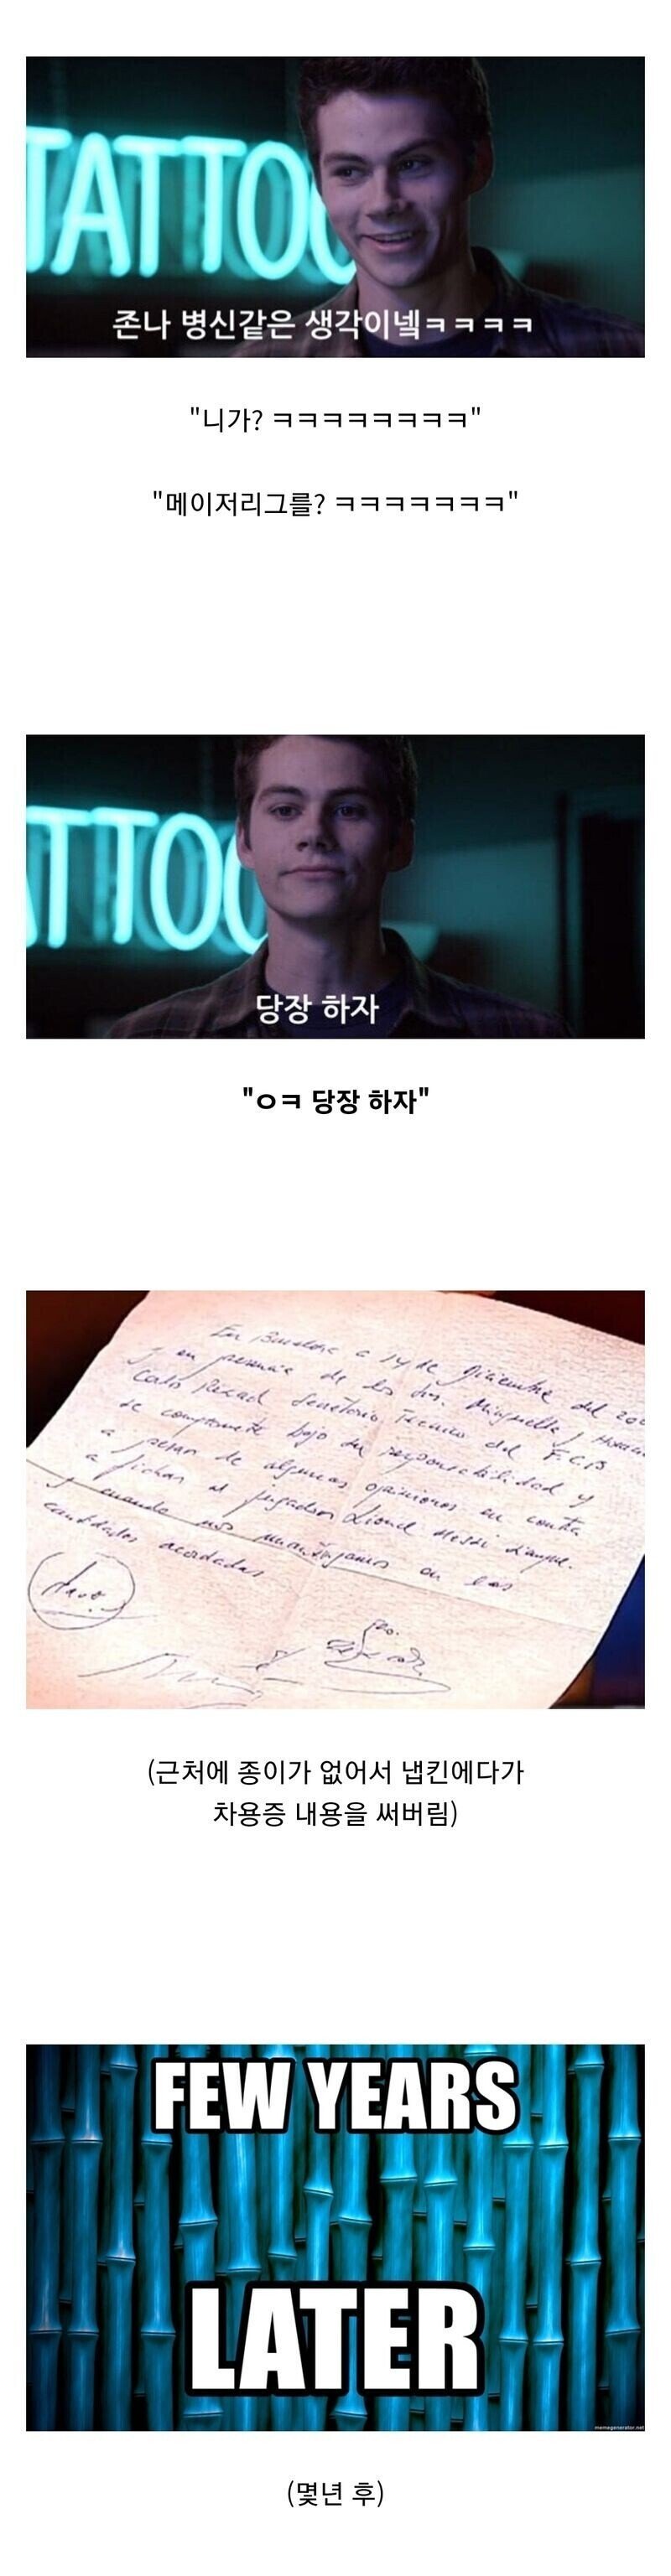 TATTOO
존나 병신같은 생각이넼ㅋㅋㅋㅋ
"니가? ㅋㅋㅋㅋㅋㅋㅋㅋ"
"메이저리그를? ㅋㅋㅋㅋㅋㅋㅋ"
ATTOO
당장 하자
"ㅇㅋ 당장 하자"
En Barcelona a 14 de Diciembre del 200
y en presencia de los Srs. Minguella y
Carlos Rexach Secretario Técnico del F.C.B
se compromete bajo su responsabilidad y
a pesar de algunas opiniones en contra
a fichar al jugador Lionel Messi
y cuando nos mantengamos en las
cantidades acordadas
(근처에 종이가 없어서 냅킨에다가
차용증 내용을 써버림)
FEW YEARS
LATER
memegenerator.net
(몇년 후)